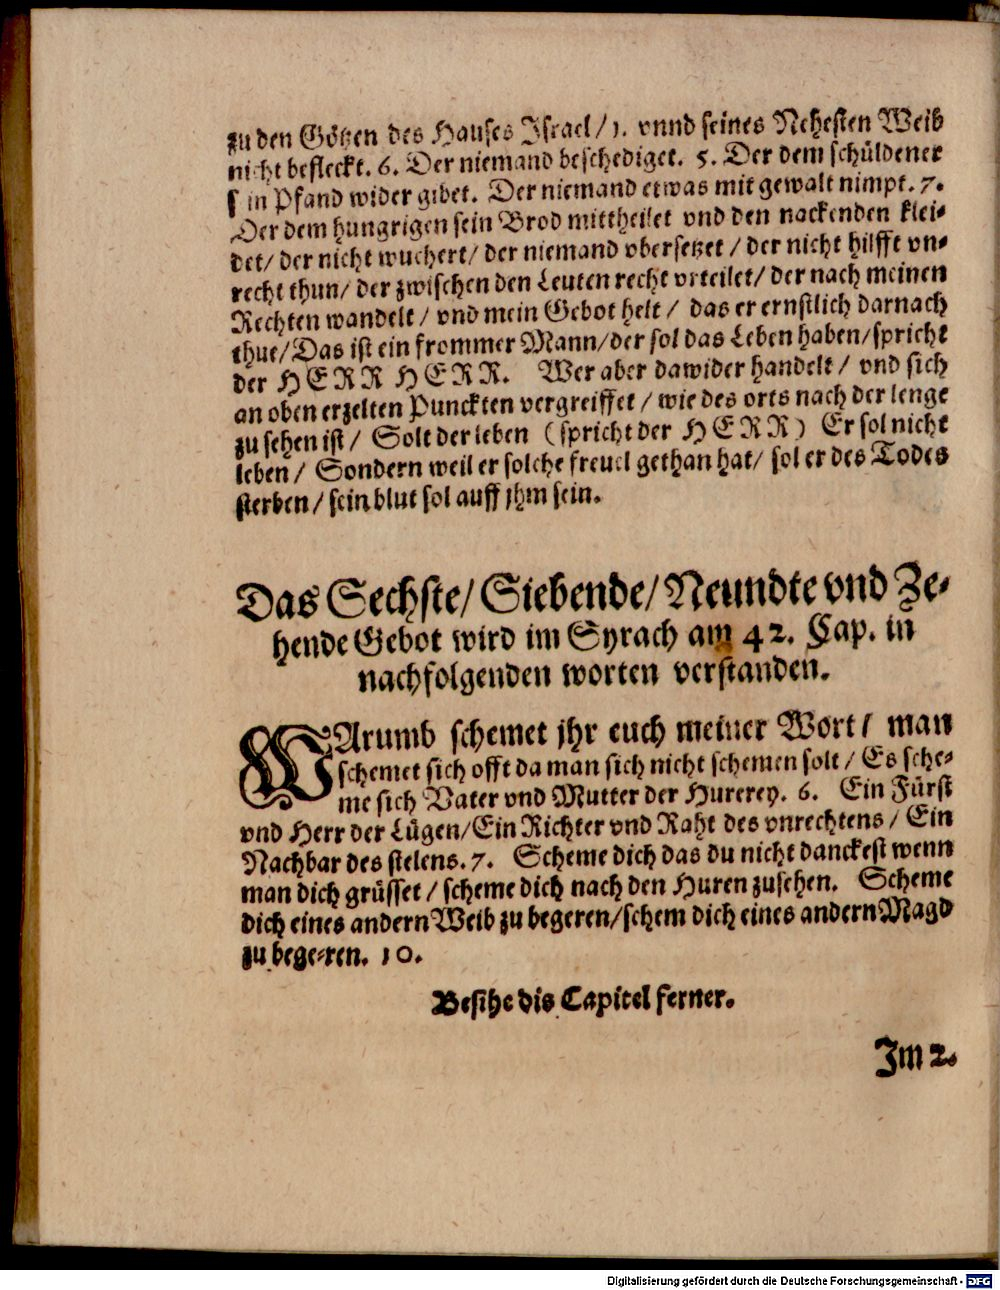 zu den Götzen des Hauses Israel / 1. vnnd seines Nehesten Weib
nicht befleckt. 6. Der niemand beschediget. 5. Der dem schüldener
sein Pfand wider gibet. Der niemand etwas mit gewalt nimpt. 7.
Der dem hungrigen sein Brod mittheilet vnd den nackenden klei-
det / der nicht wuchert / der niemand vbersetzet / der nicht hilfft vn-
recht thun / der zwischen den Leuten recht vrteilet / der nach meinen
Rechten wandelt / vnd mein Gebot helt / das er ernstlich darnach
thue / Das ist ein frommer Mann / der sol das Leben haben / spricht
der HERR HERR. Wer aber dawider handelt / vnd sich
an oben erzelten Punckten vergreiffet / wie des orts nach der lenge
zu sehen ist / Solt der leben (spricht der HERR) Er sol nicht
leben / Sondern weil er solche freuel gethan hat / sol er des Todes
sterben / sein blut sol auff jhm sein.
Das Sechste / Siebende / Neundte vnd Ze-
hende Gebot wird im Syrach am 42. Cap. in
nachfolgenden worten verstanden.
WArumb schemet jhr euch meiner Wort / man
schemet sich offt da man sich nicht schemen solt / Es sche-
me sich Vater vnd Mutter der Hurerey. 6. Ein Fürst
vnd Herr der Lügen / Ein Richter vnd Raht des vnrechtens / Ein
Nachbar des stelens. 7. Scheme dich das du nicht danckest wenn
man dich grüsset / scheme dich nach den Huren zusehen. Scheme
dich eines andern Weib zu begeren / schem dich eines andern Magd
zu begeren. 10.
Besihe dis Capitel ferner.
Im 2.
Digitalisierung gefördert durch die Deutsche Forschungsgemeinschaft - DFG